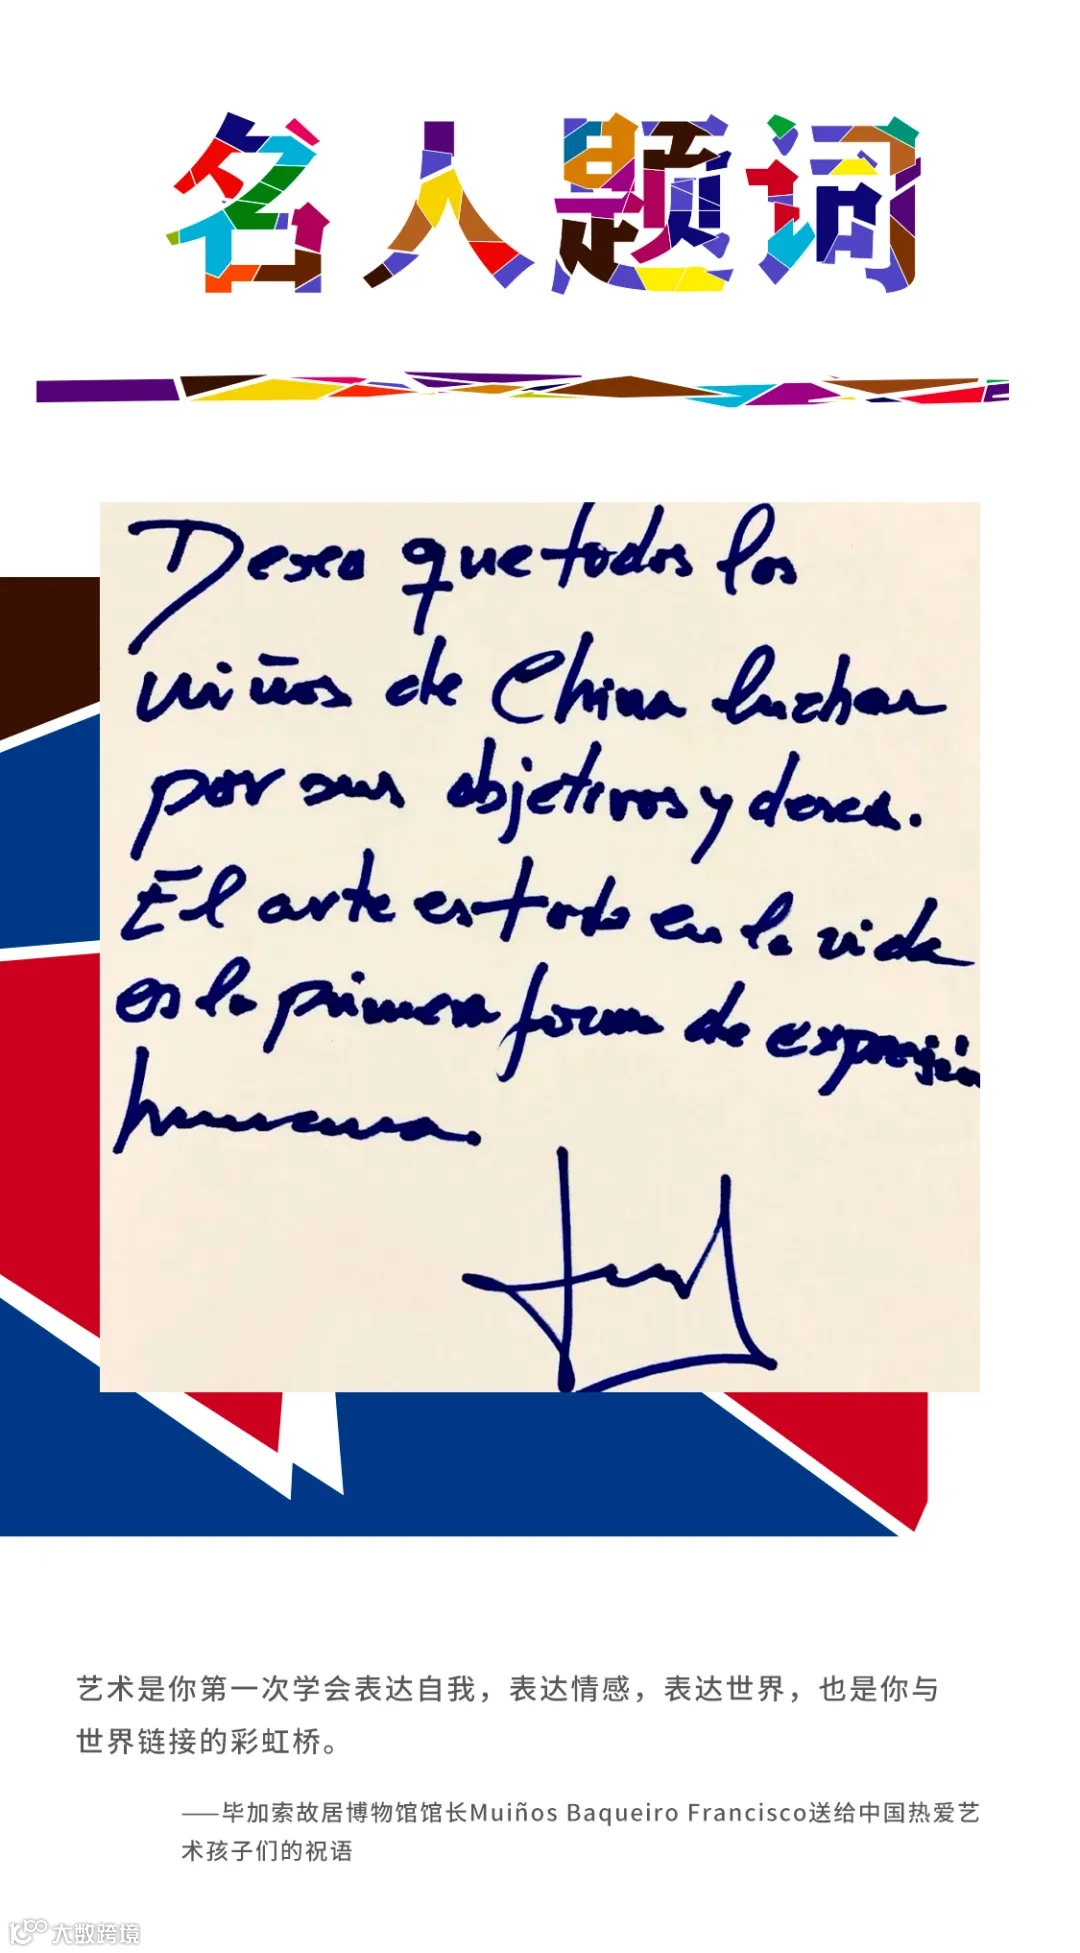 名人题词
Deseo que todos los
niños de China luchen
por sus objetivos y deseos.
El arte es todo en la vida
es la primera forma de expresión
humana.
艺术是你第一次学会表达自我，表达情感，表达世界，也是你与
世界链接的彩虹桥。
——毕加索故居博物馆馆长Muiños Baqueiro Francisco送给中国热爱艺
术孩子们的祝语
大数跨境